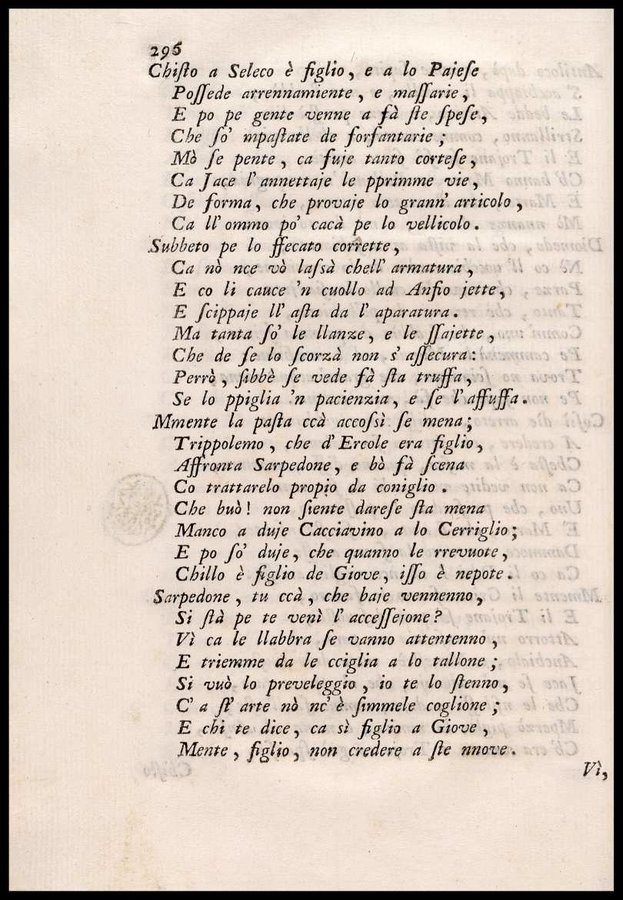 296
Chisto a Seleco è figlio, e a lo Pajese
Possede arrennamiente, e massarie,
E po pe gente venne a fà ste spese,
Che so' mpastate de forfantarie;
Mò se pente, ca fuje tanto cortese,
Ca Jace l'annettaje le pprimme vie,
De forma, che provaje lo grann' articolo,
Ca ll' ommo po' cacà pe lo vellicolo.
Subbeto pe lo ffecato corrette,
Ca nò nce vò lassà chell' armatura,
E co li cauce 'n cuollo ad Ansio jette,
E scippaje ll' asta da l' aparatura.
Ma tanta so' le llanze, e le ssajette,
Che de se lo scorzà non s' assecura:
Perrò, sibbè se vede fà sta truffa,
Se lo ppiglia 'n pacienzia, e se l'affuffa.
Mmente la pasta ccà accossì se mena;
Trippolemo, che d'Ercole era figlio,
Affronta Sarpedone, e bò fà scena
Co trattarelo propio da coniglio.
Che buò! non siente darese sta mena
Manco a duje Cacciavino a lo Cerriglio;
E po so' duje, che quanno le rrevuote,
Chillo è figlio de Giove, isso è nepote.
Sarpedone, tu ccà, che baje vennenno,
Si stà pe te venì l' accessejone?
Vì ca le llabbra se vanno attentenno,
E triemme da le cciglia a lo tallone;
Si vuò lo preveleggio, io te lo stenno,
C' a st' arte nò nc' è simmele coglione;
E chi te dice, ca sì figlio a Giove,
Mente, figlio, non credere a ste nnove.
Vì,